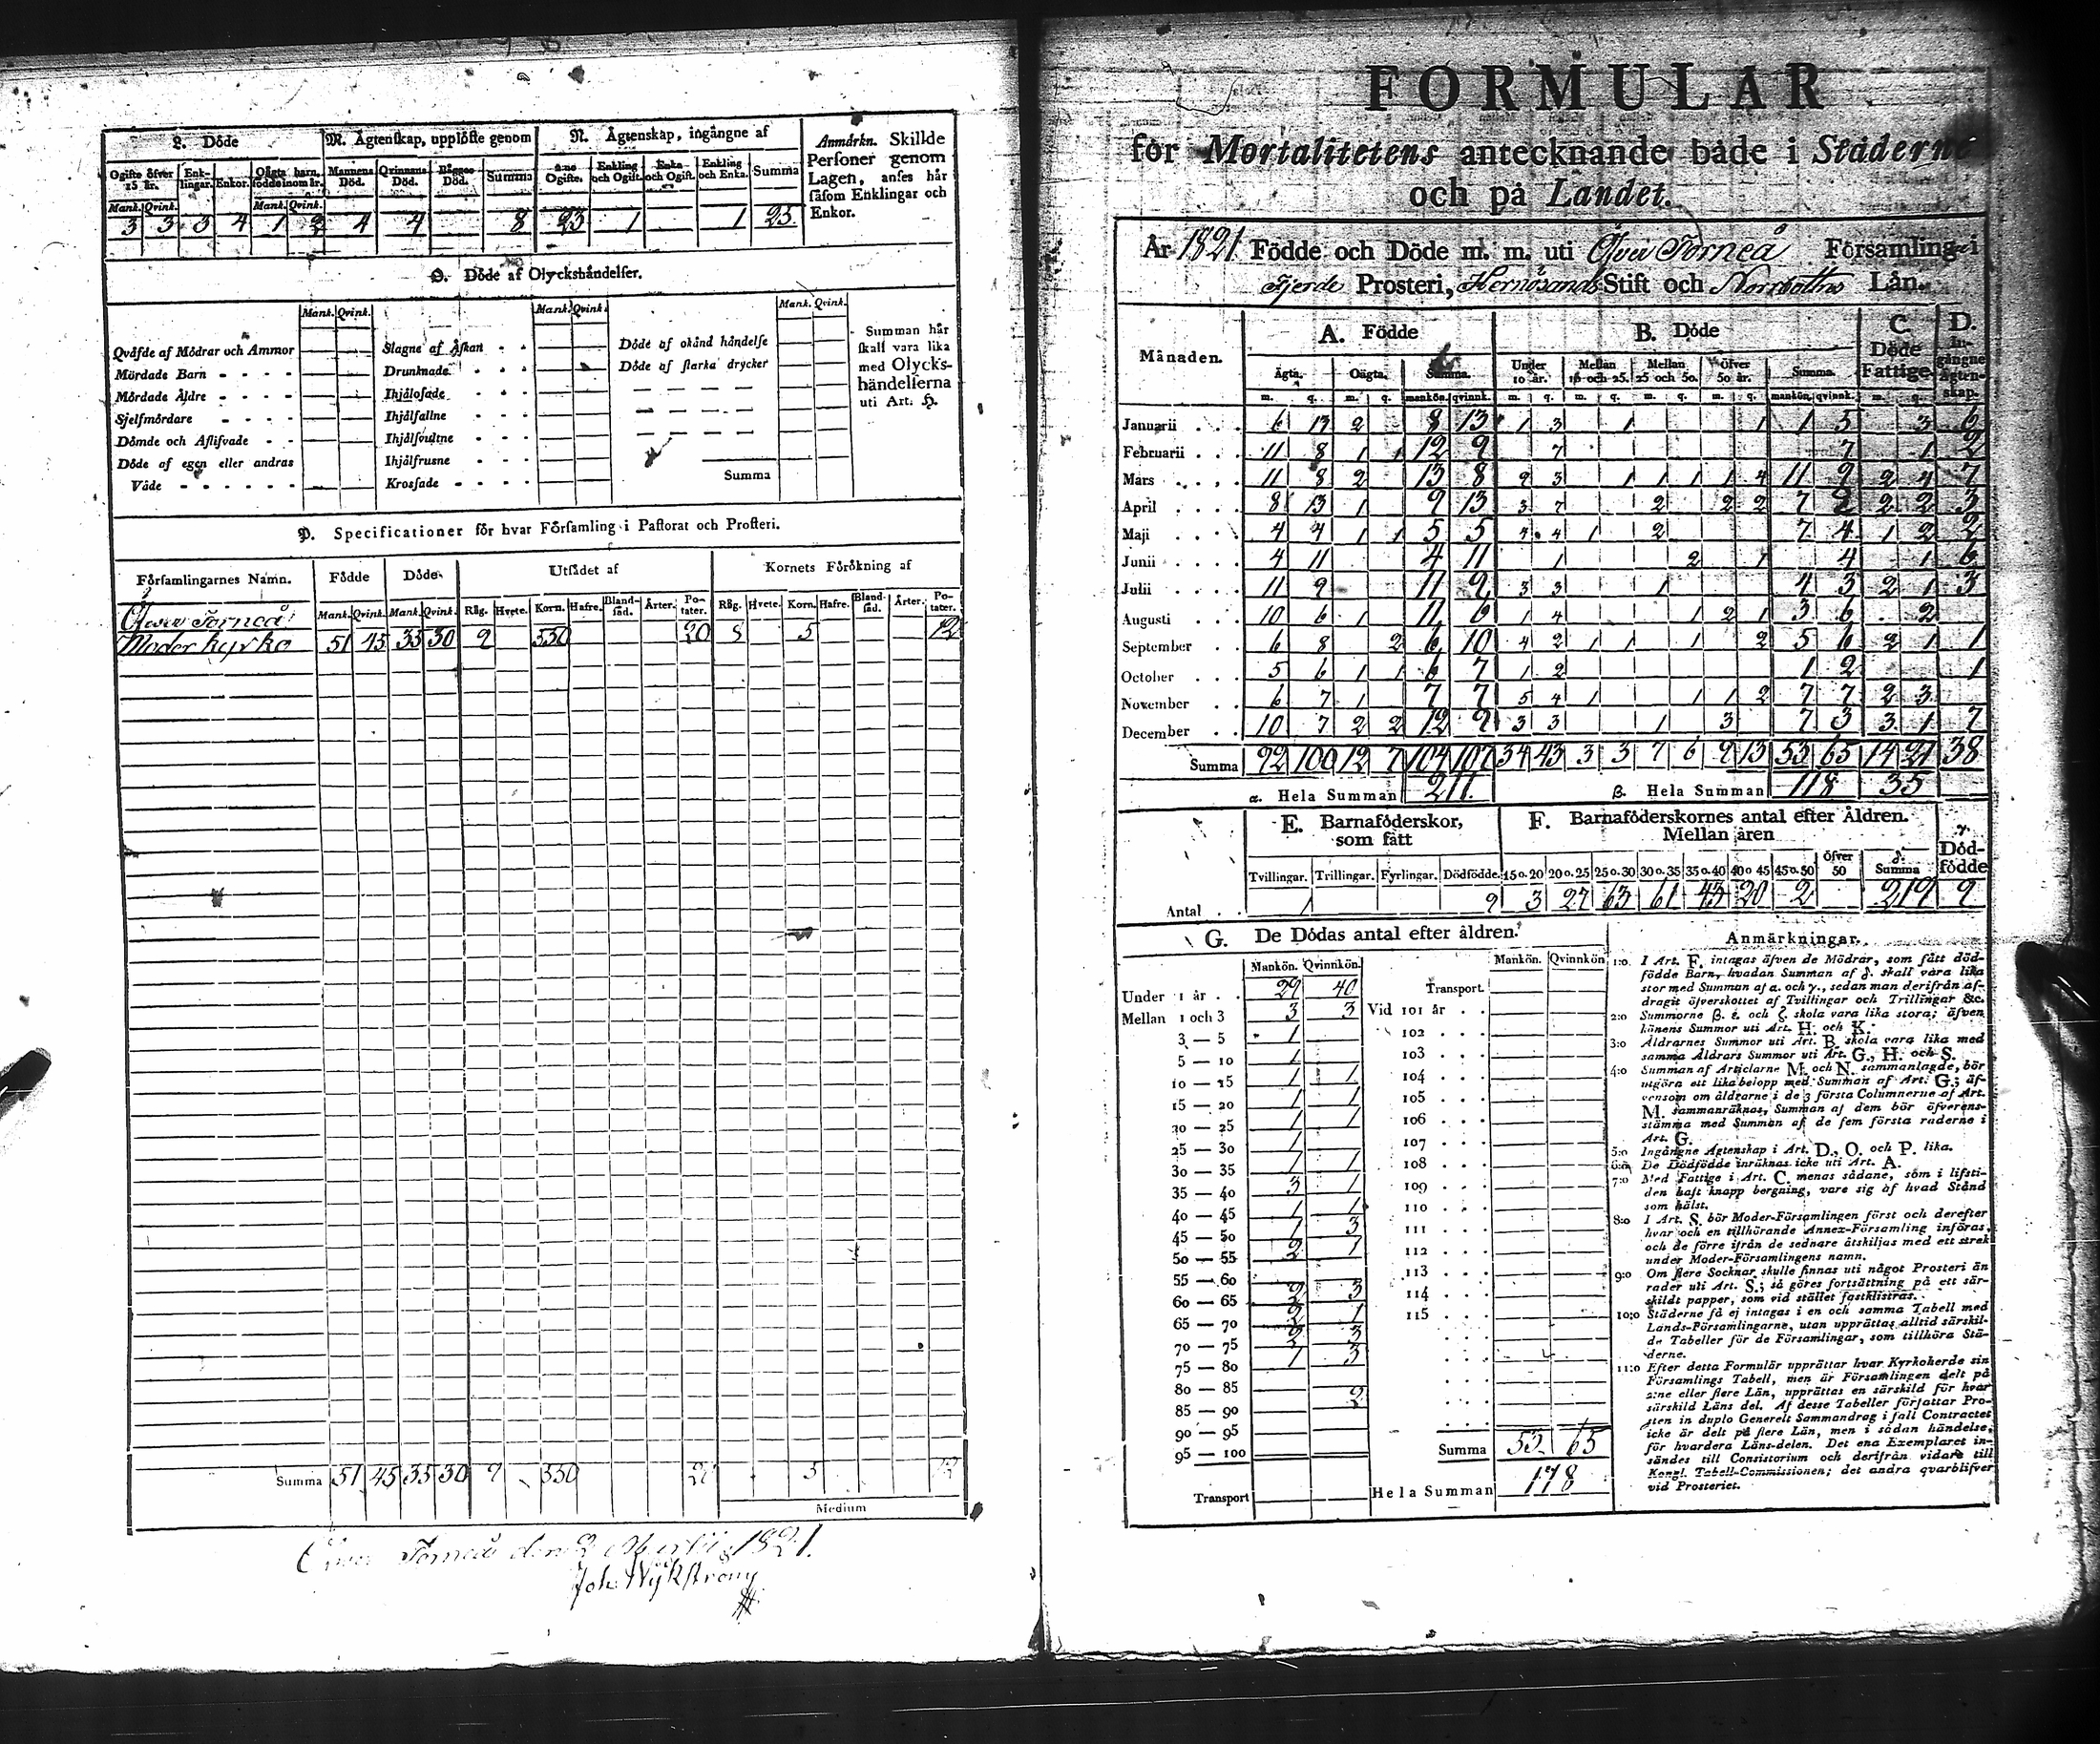 L. Döde
M. Ägtenskap, upplöste genom
N. Ägtenskap, ingångne af
Anmärkn. Skillde
Personer genom
Lagen, anses här
såsom Enklingar och
Enkor.
Ogifte öfver 15 år.
Enk-lingar.
Enkor.
Oägta barn, födde inom år.
Mannens Död.
Qvinnans Död.
Bägges Död.
Summa
Ogifte.
Enkling och Ogift.
Enka och Ogift.
Enkling och Enka.
Summa
Mank. Qvink. Mank. Qvink.
3 3 3 4 1 2 4 4 8 23 1 1 25
O. Döde af Olyckshändelser.
Mank. Qvink. Mank. Qvink. Mank. Qvink.
Qväfde af Mödrar och Ammor
Mördade Barn
Mördade Äldre
Sjelfmördare
Dömde och Aflifvade
Döde af egen eller andras
Våde
Slagne af Åskan
Drunknade
Ihjälosade
Ihjälfallne
Ihjälsvultne
Ihjälfrusne
Krossade
Döde af okänd händelse
Döde af starka drycker
Summa
Summan här
skall vara lika
med Olycks-
händelserna
uti Art. H.
P. Specificationer för hvar Församling i Pastorat och Prosteri.
Församlingarnes Namn. Födde Döde Utsädet af Kornets Förökning af
Mank. Qvink. Mank. Qvink. Råg. Hvete. Korn. Hafre. Bland-säd. Ärter. Po-tater. Råg. Hvete. Korn. Hafre. Bland-säd. Ärter. Po-tater.
Öfver Torneå
Moder kyrka 51 45 35 30 9 550 20 8 5 12
Summa 51 45 35 30 9 550 20 5 12
Medium
Öfver Torneå den 2 Martii 1821.
Joh. Wykström
FORMULAR
för Mortalitetens antecknande både i Städerne
och på Landet.
År 1821 Födde och Döde m. m. uti Öfver Torneå Församling i
Fjerde Prosteri, Hernösands Stift och Norrbottns Län.
Månaden. A. Födde B. Döde C. Döde Fattige D. In-gångne Ägten-skap.
Ägta. Oägta. Summa. Under 10 år. Mellan 10 och 25. Mellan 25 och 50. Öfver 50 år. Summa.
m. q. m. q. mankön. qvinnk. m. q. m. q. m. q. m. q. mankön. qvinnk. m. q.
Januarii 6 13 2 8 13 1 3 1 1 1 5 3 6
Februarii 11 8 1 1 12 9 7 7 1 2
Mars 11 8 2 13 8 9 3 1 1 1 1 4 11 9 2 4 7
April 8 13 1 9 13 3 7 2 2 2 7 9 2 2 3
Maji 4 4 1 1 5 5 4 4 1 2 7 4 1 2 2
Junii 4 11 4 11 1 2 1 4 1 6
Julii 11 9 11 9 3 3 1 4 3 2 1 3
Augusti 10 6 1 11 6 1 4 1 2 1 3 6 2
September 6 8 2 6 10 4 2 1 1 1 2 5 6 2 1 1
October 5 6 1 1 6 7 1 2 1 2 1
November 6 7 1 7 7 5 4 1 1 1 2 7 7 2 3
December 10 7 2 2 12 9 3 3 1 3 7 3 3 1 7
Summa 92 100 12 7 104 107 34 43 3 3 7 6 9 13 53 65 14 21 38
α. Hela Summan 211. β. Hela Summan 118 35
E. Barnaföderskor, som fått
F. Barnaföderskornes antal efter Åldren. Mellan åren
γ. Död-födde
Tvillingar. Trillingar. Fyrlingar. Dödfödde. 15 o. 20 20 o. 25 25 o. 30 30 o. 35 35 o. 40 40 o. 45 45 o. 50 Öfver 50 δ. Summa
Antal 1 9 3 27 63 61 43 20 2 219 9
G. De Dödas antal efter åldren.
Mankön. Qvinnkön. Mankön. Qvinnkön
Under 1 år 29 40
Mellan 1 och 3 3 3
3 — 5 1
5 — 10 1
10 — 15 1 1
15 — 20 1 1
20 — 25 1 1
25 — 30 1
30 — 35 1 1
35 — 40 3 1
40 — 45 1 1
45 — 50 1 3
50 — 55 2 1
55 — 60
60 — 65 2 3
65 — 70 2 1
70 — 75 2 3
75 — 80 1 3
80 — 85
85 — 90 2
90 — 95
95 — 100
Transport
Transport.
Vid 101 år
102
103
104
105
106
107
108
109
110
111
112
113
114
115
Summa 53 65
Hela Summan 118
Anmärkningar.
1:o. I Art. F. intagas äfven de Mödrar, som fått död-
födde Barn, hvadan Summan af δ. skall vara lika
stor med Summan af α. och γ., sedan man derifrån af-
dragit öfverskottet af Tvillingar och Trillingar &c.
2:o Summorne β. ε. och ζ. skola vara lika stora; äfven
könens Summor uti Art. H. och K.
3:o Åldrarnes Summor uti Art. B. skola vara lika med
samma Åldrars Summor uti Art. G., H. och S.
4:o Summan af Articlarne M. och N. sammanlagde, bör
utgöra ett lika belopp med Summan af Art. G.; äf-
vensom om åldrarne i de 3 första Columnerne af Art.
M. sammanräknas, Summan af dem bör öfverens-
stämma med Summan af de fem första raderne i
Art. G.
5:o Ingångne Ägtenskap i Art. D., O. och P. lika.
6:o De Dödfödde inräknas icke uti Art. A.
7:o Med Fattige i Art. C. menas sådane, som i lifsti-
den haft knapp bergning, vare sig af hvad Stånd
som hälst.
8:o I Art. S. bör Moder-Församlingen först och derefter
hvar och en tillhörande Annex-Församling införas,
och de förre ifrån de sednare åtskiljas med ett strek
under Moder-Församlingens namn.
9:o Om flere Socknar skulle finnas uti något Prosteri än
rader uti Art. S.; så göres fortsättning på ett sär-
skildt papper, som vid stället fastklistras.
10:o Städerne få ej intagas i en och samma Tabell med
Lands-Församlingarne, utan upprättas alltid särskil-
de Tabeller för de Församlingar, som tillhöra Stä-
derne.
11:o Efter detta Formulär upprättar hvar Kyrkoherde sin
Församlings Tabell, men är Församlingen delt på
2:ne eller flere Län, upprättas en särskild för hvar
särskild Läns del. Af desse Tabeller författar Pro-
sten in duplo Generelt Sammandrag i fall Contractet
icke är delt på flere Län, men i sådan händelse,
för hvardera Läns-delen. Det ena Exemplaret in-
sändes till Consistorium och derifrån vidare till
Kongl. Tabell-Commissionen; det andra qvarblifver
vid Prosteriet.